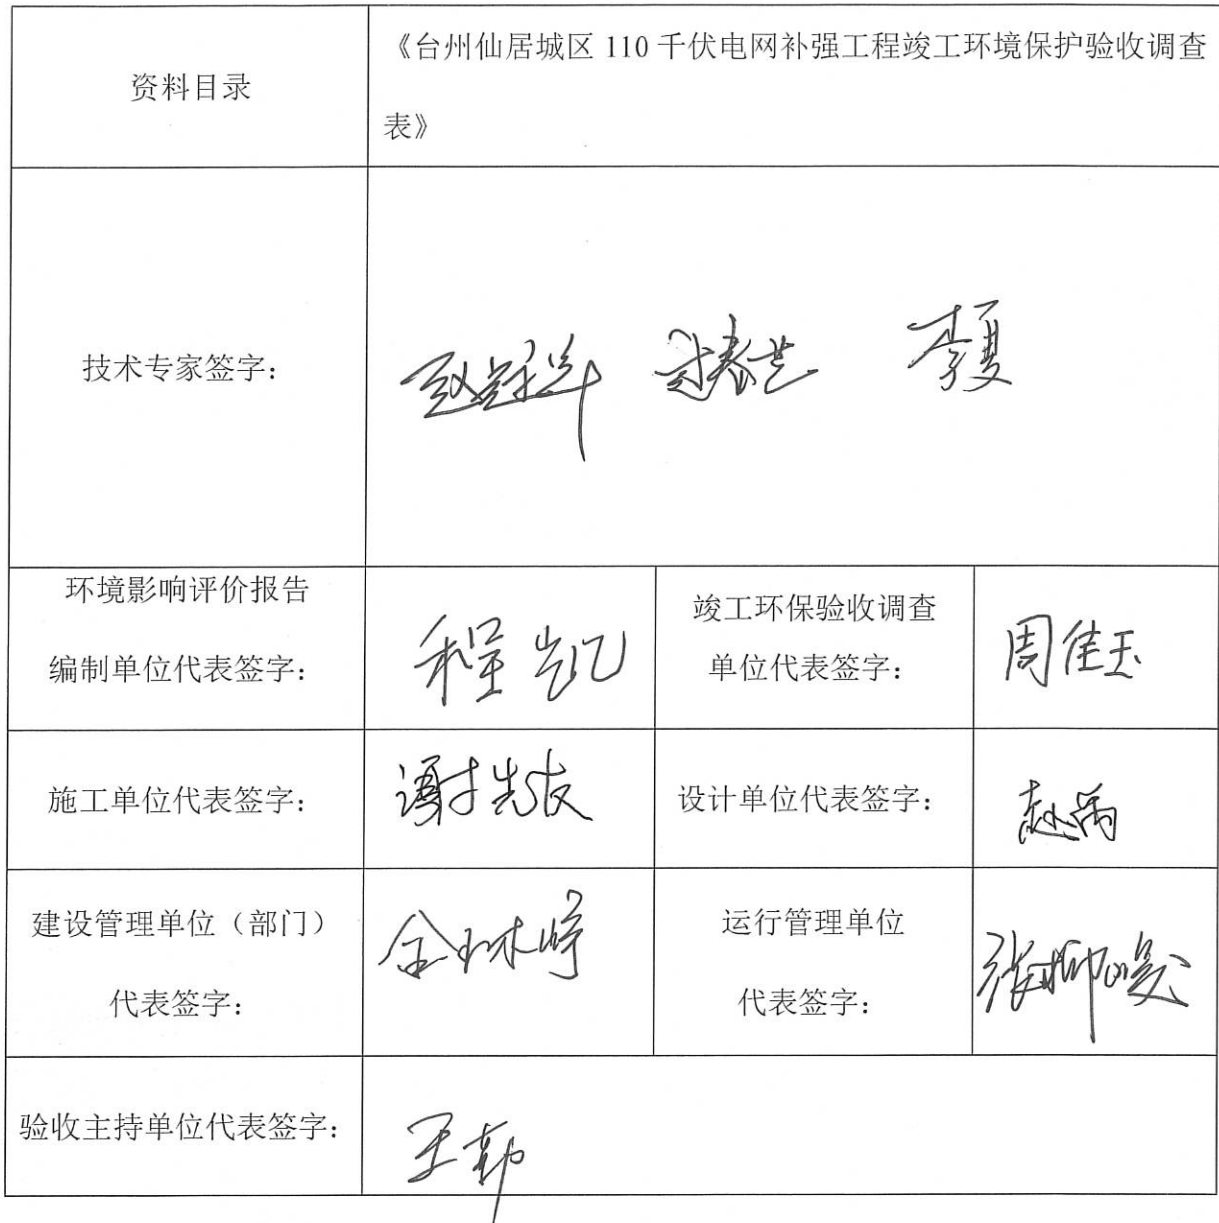 资料目录
《台州仙居城区 110 千伏电网补强工程竣工环境保护验收调查
表》
技术专家签字：
李夏
环境影响评价报告
编制单位代表签字：
程凯
竣工环保验收调查
单位代表签字：
周佳玉
施工单位代表签字：
谢先友
设计单位代表签字：
赵禹
建设管理单位（部门）
代表签字：
运行管理单位
代表签字：
验收主持单位代表签字：